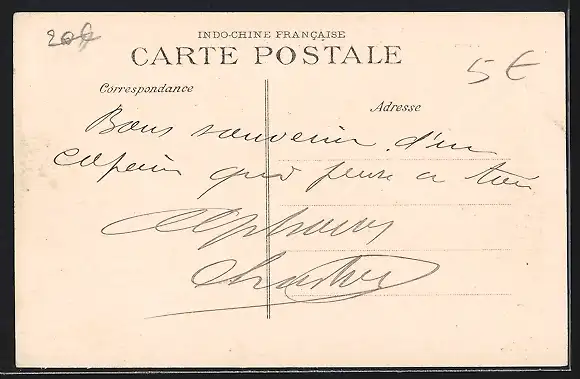 20f
INDO-CHINE FRANÇAISE
CARTE POSTALE
5 €
Correspondance
Adresse
Bons souvenir d'un
copain qui pense a toi
Alphonse